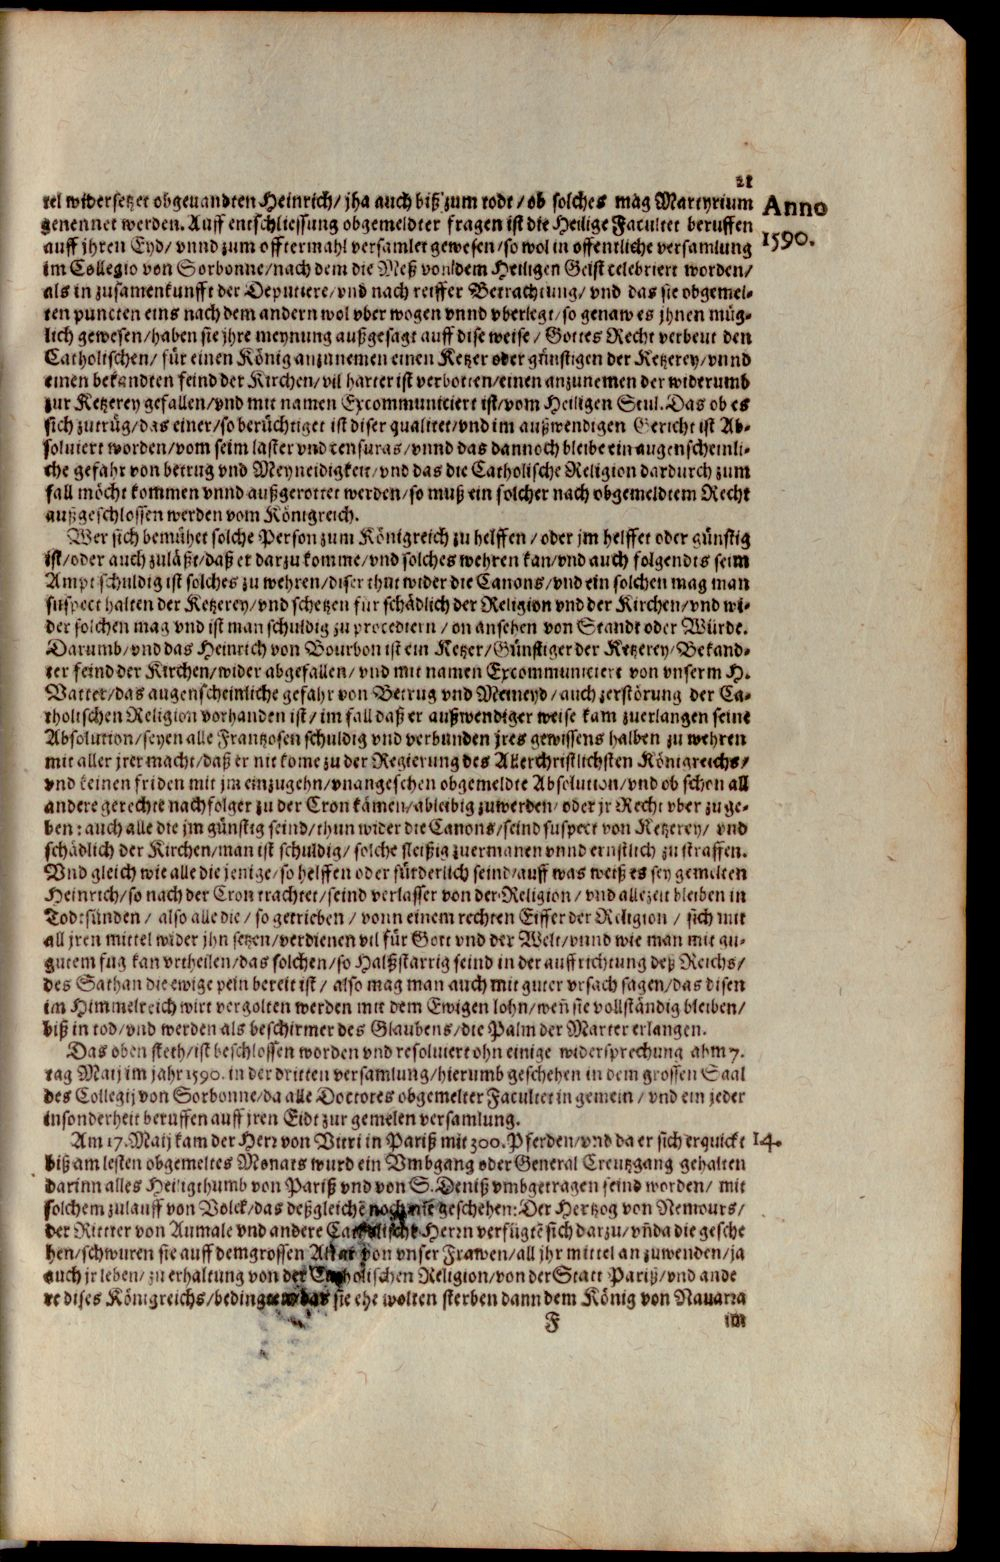 21
tel widersetzet obgenandten Heinrich/ jha auch biß zum todt/ ob solches mag Martyrium
genennet werden. Auff entschliessung obgemeldter fragen ist die Heilige Facultet beruffen
auff jhren Eyd/ vnnd zum offtermahl versamlet gewesen/ so wol in offentliche versamlung
im Collegio von Sorbonne/ nach dem die Meß von dem Heiligen Geist celebriert worden/
als in zusamenkunfft der Deputiere/ vnd nach reiffer Betrachtung/ vnd das sie obgemel-
ten puncten eins nach dem andern wol vber wogen vnnd vberlegt/ so genaw es jhnen müg-
lich gewesen/ haben sie jhre meynung außgesagt auff dise weise/ Gottes Recht verbeut den
Catholischen/ für einen König anzunemen einen Ketzer oder günstigen der Ketzerey/ vnnd
einen bekandten feind der Kirchen/ vil harter ist verbotten/ einen anzunemen der widerumb
zur Ketzerey gefallen/ vnd mit namen Excommuniciert ist/ vom Heiligen Stul. Das ob es
sich zutrüg/ das einer/ so berüchtiget ist diser qualitet/ vnd im außwendigen Gericht ist Ab-
solviert worden/ vom seim laster vnd censuras/ vnnd das dannoch bleibe ein augenscheinli-
che gefahr von betrug vnd Meyneidigkeit/ vnd das die Catholische Religion dardurch zum
fall möcht kommen vnnd außgerottet werden/ so muß ein solcher nach obgemeldtem Recht
außgeschlossen werden vom Königreich.
Wer sich bemühet solche Person zum Königreich zu helffen/ oder jm helffet oder günstig
ist/ oder auch zuläßt/ daß er darzu komme/ vnd solches wehren kan/ vnd auch folgendts seim
Ampt schuldig ist solches zu wehren/ diser thut wider die Canons/ vnd ein solchen mag man
suspect halten der Ketzerey/ vnd schetzen für schädlich der Religion vnd der Kirchen/ vnd wi-
der solchen mag vnd ist man schuldig zu procediern/ on ansehen von Standt oder Würde.
Darumb/ vnd das Heinrich von Bourbon ist ein Ketzer/ Günstiger der Ketzerey/ Bekand-
ter feind der Kirchen/ wider abgefallen/ vnd mit namen Excommuniciert von vnserm H.
Vatter/ das augenscheinliche gefahr von Betrug vnd Meineyd/ auch zerstörung der Ca-
tholischen Religion vorhanden ist/ im fall daß er außwendiger weise kam zuerlangen seine
Absolution/ seyen alle Frantzosen schuldig vnd verbunden jres gewissens halben zu wehren
mit aller jrer macht/ daß er nit kome zu der Regierung des Allerchristlichsten Königreichs/
vnd keinen friden mit jm einzugehn/ vnangesehen obgemeldte Absolution/ vnd ob schon all
andere gerechte nachfolger zu der Cron kämen/ ableibig zuwerden/ oder jr Recht vber zu ge-
ben: auch alle die jm günstig seind/ thun wider die Canons/ seind suspect von Ketzerey/ vnd
schädlich der Kirchen/ man ist schuldig/ solche fleißig zuermanen vnnd ernstlich zu straffen.
Vnd gleich wie alle die jenige/ so helffen oder fürderlich seind/ auff was weiß es sey gemelten
Heinrich/ so nach der Cron trachtet/ seind verlasser von der Religion/ vnd allezeit bleiben in
Todtsünden/ also alle die/ so getrieben/ vonn einem rechten Eiffer der Religion/ sich mit
all jren mittel wider jhn setzen/ verdienen vil für Gott vnd der Welt/ vnnd wie man mit gu-
gutem fug kan vrtheilen/ das solchen/ so Halßstarrig seind in der auffrichtung deß Reichs/
des Sathan die ewige pein bereit ist/ also mag man auch mit guter vrsach sagen/ das disen
im Himmelreich wirt vergolten werden mit dem Ewigen lohn/ weñ sie vollständig bleiben/
biß in tod/ vnd werden als beschirmer des Glaubens/ die Palm der Marter erlangen.
Das oben steth/ ist beschlossen worden vnd resolviert ohn einige widersprechung ahm 7.
tag Maij im jahr 1590. in der dritten versamlung/ hierumb geschehen in dem grossen Saal
des Collegij von Sorbonne/ da alle Doctores obgemelter Facultet in gemein/ vnd ein jeder
insonderheit beruffen auff jren Eidt zur gemelen versamlung.
Am 17. Maij kam der Herr von Vitri in Pariß mit 300. Pferden/ vnd da er sich erquickt
biß am lesten obgemeltes Monats wurd ein Vmbgang oder General Creutzgang gehalten
darinn alles Heiligthumb von Pariß vnd von S. Deniß vmbgetragen seind worden/ mit
solchem zulauff von Volck/ das deßgleichẽ noch nie geschehen: Der Hertzog von Nemours/
der Ritter von Aumale vnd andere Catholische Herrn verfügtẽ sich darzu/ vñ da die gesche
hen/ schwuren sie auff dem grossen Altar von vnser Frawen/ all jhr mittel anzuwenden/ ja
auch jr leben/ zu erhaltung von der Catholischen Religion/ von der Statt Pariß/ vnd ande
re dises Königreichs/ bedingten das sie ehe wolten sterben dann dem König von Nauarra
F
im
Anno
1590.
14.